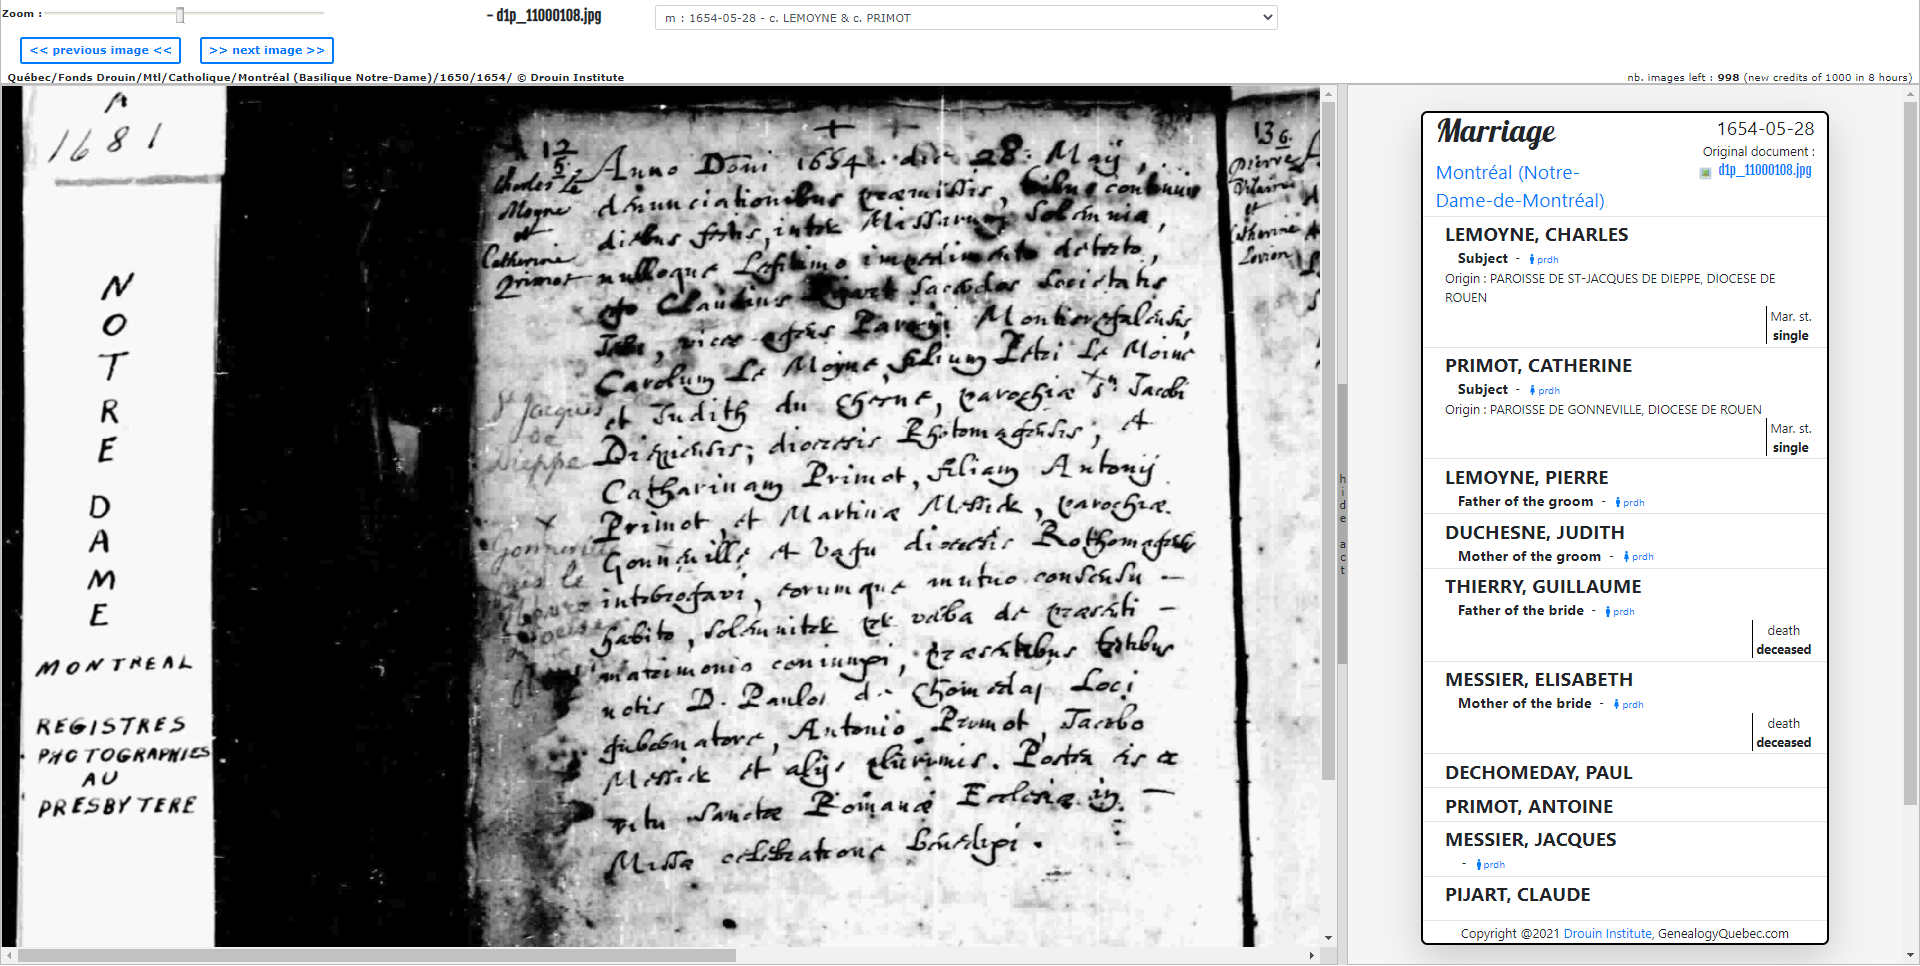 Zoom :
- d1p_11000108.jpg
m : 1654-05-28 - c. LEMOYNE & c. PRIMOT
<< previous image <<
>> next image >>
Québec/Fonds Drouin/Mtl/Catholique/Montréal (Basilique Notre-Dame)/1650/1654/ © Drouin Institute
nb. images left : 998 (new credits of 1000 in 8 hours)
A
1681
NOTRE DAME
MONTREAL
REGISTRES
PHOTOGRAPHIES
AU
PRESBYTERE
Charles Le
Moyne
et
Catherine
Primot
St Jacques
de
Dieppe
Anno Domi 1654 die 28 Maij,
denunciationibus praemissis, tribus continuis
diebus festis, inter Missarum Solemnia,
nulloque Legitimo impedimento detecto,
ego Claudius Pijart Sacerdos Societatis
Jesu, vices agens Parochi Montisregalensis,
Carolum Le Moyne, filium Petri Le Moine
et Judith du Chesne, parochiae Sti Jacobi
Diepensis, dioecesis Rhotomagensis, et
Catharinam Primot, filiam Antonij
Primot, et Martinae Messier, parochiae
Gonneville et dioecesis Rothomagensis
interrogavi, eorumque mutuo consensu
habito, solemniter per verba de praesenti
matrimonio coniunxi, praesentibus testibus
notis D. Paulo de Chomedey Loci
gubernatore, Antonio Primot, Jacobo
Messier et alijs plurimis. Postea eis ex
ritu Sanctae Romanae Ecclesiae in
Missae celebratione benedixi.
136.
Pierre
et
Catherine
Lorion
hide act
Marriage
1654-05-28
Original document :
d1p_11000108.jpg
Montréal (Notre-
Dame-de-Montréal)
LEMOYNE, CHARLES
Subject - prdh
Origin : PAROISSE DE ST-JACQUES DE DIEPPE, DIOCESE DE
ROUEN
Mar. st.
single
PRIMOT, CATHERINE
Subject - prdh
Origin : PAROISSE DE GONNEVILLE, DIOCESE DE ROUEN
Mar. st.
single
LEMOYNE, PIERRE
Father of the groom - prdh
DUCHESNE, JUDITH
Mother of the groom - prdh
THIERRY, GUILLAUME
Father of the bride - prdh
death
deceased
MESSIER, ELISABETH
Mother of the bride - prdh
death
deceased
DECHOMEDAY, PAUL
PRIMOT, ANTOINE
MESSIER, JACQUES
- prdh
PIJART, CLAUDE
Copyright @2021 Drouin Institute, GenealogyQuebec.com